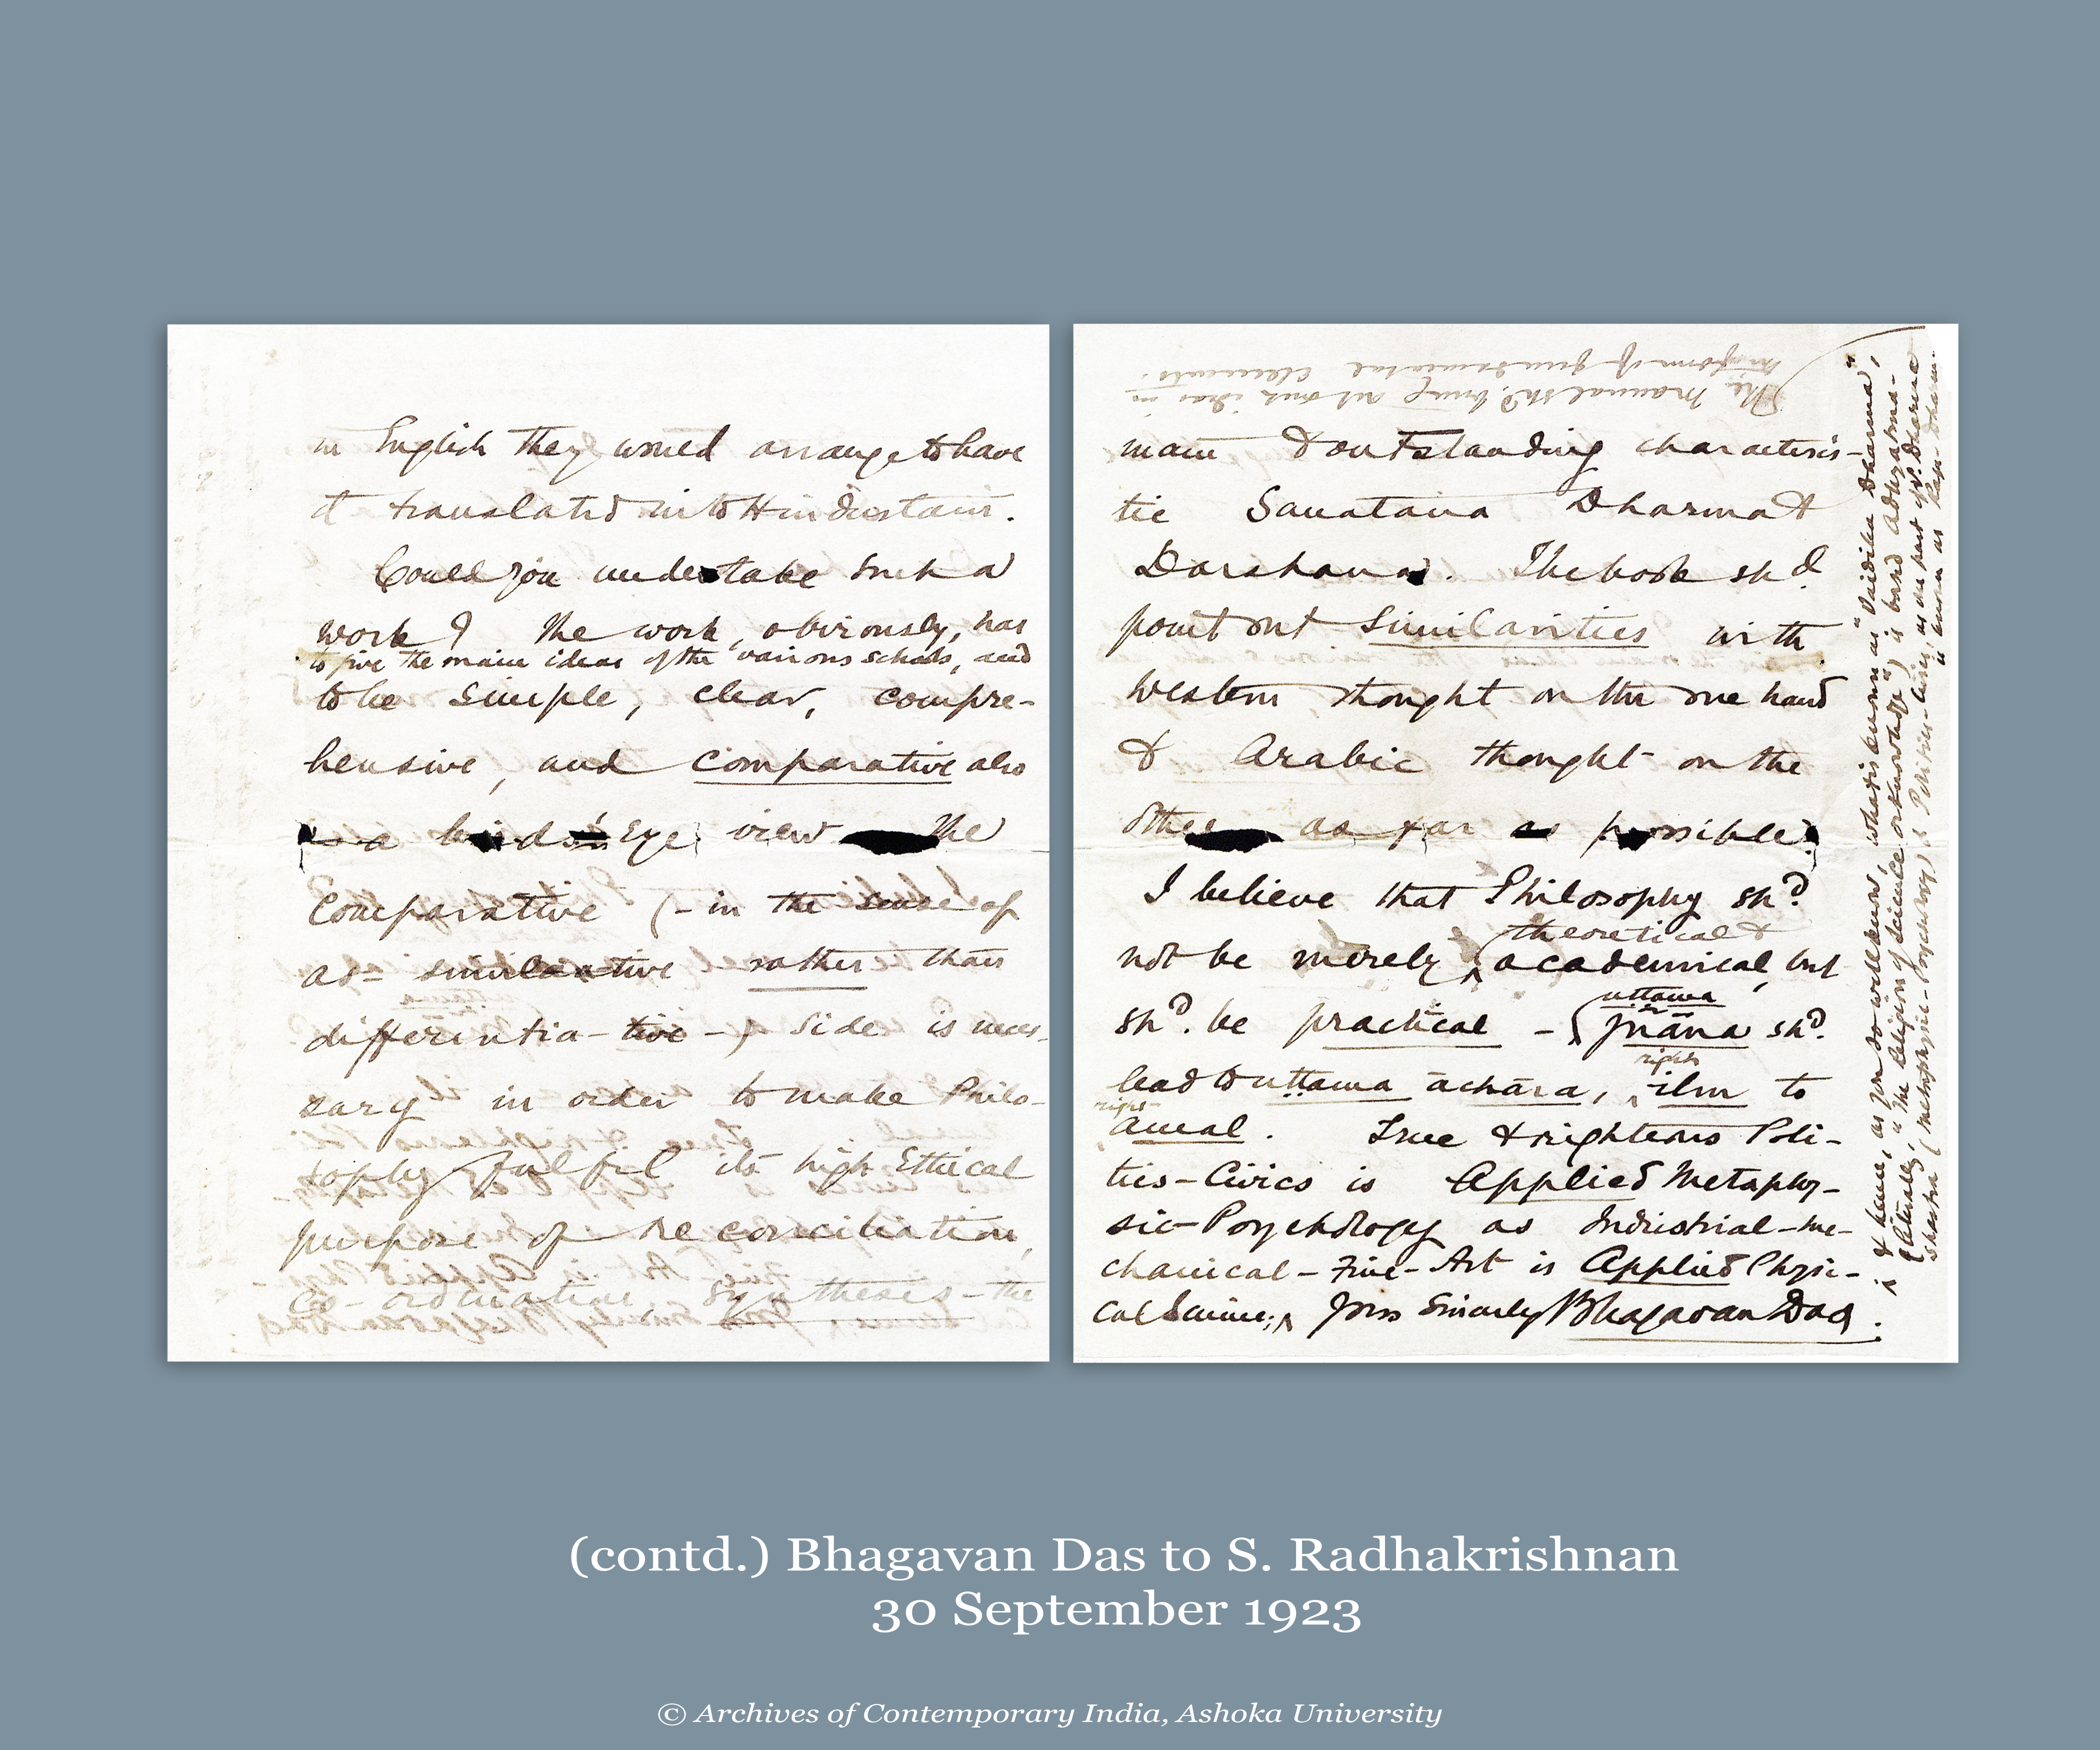 in English they would arrange to have
it translated into Hindustani.
Could you undertake such a
work? The work, obviously, has
to give the main ideas of the various schools, and
to be simple, clear, compre-
hensive, and comparative also
a bird's Eye view The
Comparative (- in the sense of
as- similative rather than
differentia-tive -) side is neces-
sary in order to make Philo-
sophy fulfil its high Ethical
purpose of reconciliation,
co-ordination, synthesis - the
The Manual shd. bring out our ideas in
the form of fundamental elements.
main & outstanding characteris-
tic Sanatana Dharma &
Darshana. The book shd
point out similarities with
Western thought on the one hand
& Arabic thought on the
other as far as possible.
I believe that Philosophy shd
theoretical &
not be merely academical, but
uttama
shd. be practical - jnāna shd.
right
lead to uttama āchāra, ilm to
right
amal. True & righteous Poli-
tics-Civics is Applied Metaphy-
sic-Psychology as Industrial-me-
chanical-Fine-Art is Applied Physi-
cal Science; Yours Sincerely Bhagavan Das.
& hence, as you so well know, what is known as "Vaidika Dharma",
(literally, "the Religion of Science or knowledge") is based Adhyatma-
shastra (metaphysic-Psychology) & Politics-Civics, as a part of V. Dharma
is known as Raja-Dharm.
(contd.) Bhagavan Das to S. Radhakrishnan
30 September 1923
© Archives of Contemporary India, Ashoka University